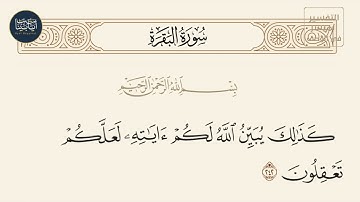 سُورَةُ البَقَرَةِ
بِسْمِ اللَّهِ الرَّحْمَٰنِ الرَّحِيمِ
كَذَٰلِكَ يُبَيِّنُ ٱللَّهُ لَكُمْ ءَايَٰتِهِۦ لَعَلَّكُمْ
تَعْقِلُونَ ٢٤٢